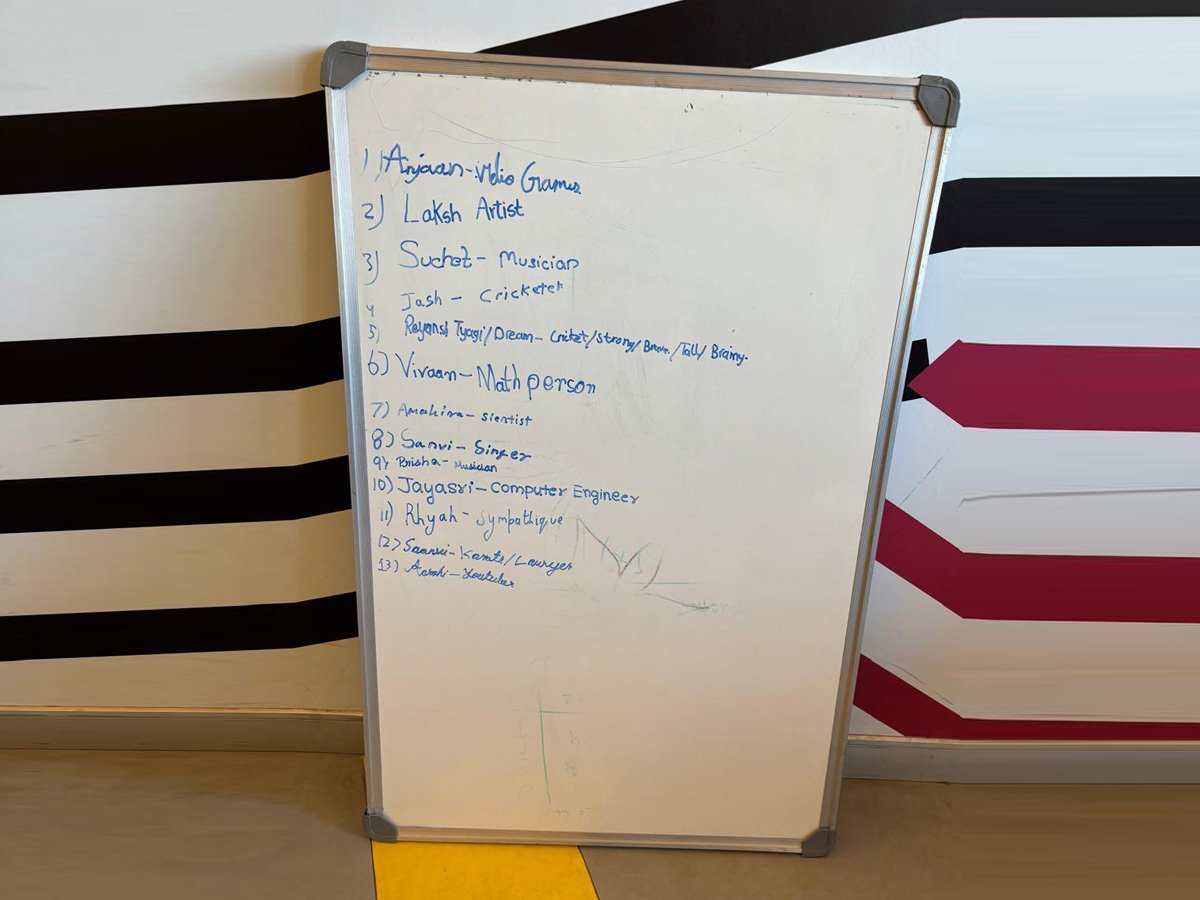 1) Arjaan - vidio Games
2) Laksh Artist
3) Suchet - Musician
4 Jash - Cricketer
5) Reyansh Tyagi/Dream - Cricket/Strong/Brave/Tall/Brainy.
6) Vivaan - Math person
7) Amahira - sientist
8) Sanvi - Singer
9) Prisha - Musician
10) Jayasri - Computer Engineer
11) Rhyah - Sympathique
12) Saanvi - Karate/Lawyer
13) Aarohi - Youtuber